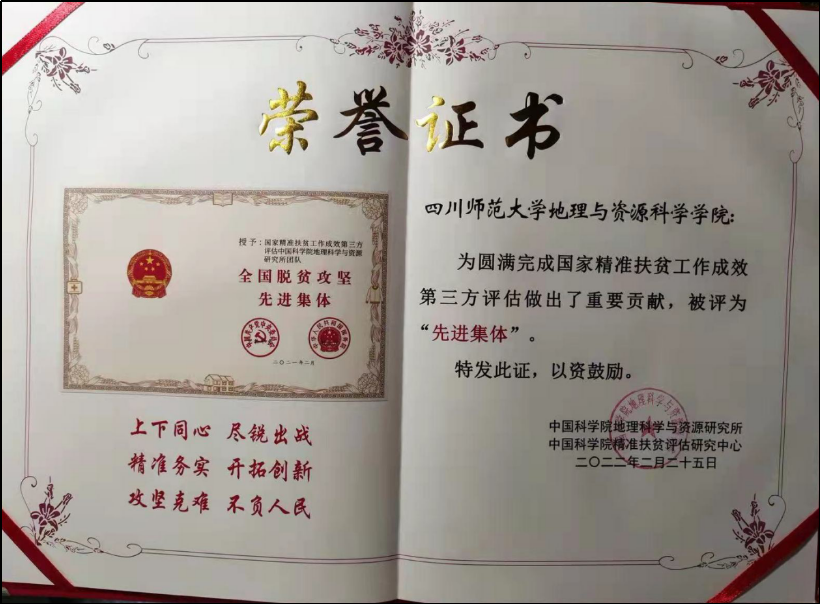 荣誉证书
授予：国家精准扶贫工作成效第三方
评估中国科学院地理科学与资源
研究所团队
全国脱贫攻坚
先进集体
二〇二一年二月
上下同心 尽锐出战
精准务实 开拓创新
攻坚克难 不负人民
四川师范大学地理与资源科学学院：
为圆满完成国家精准扶贫工作成效
第三方评估做出了重要贡献，被评为
“先进集体”。
特发此证，以资鼓励。
中国科学院地理科学与资源研究所
中国科学院精准扶贫评估研究中心
二〇二二年二月二十五日